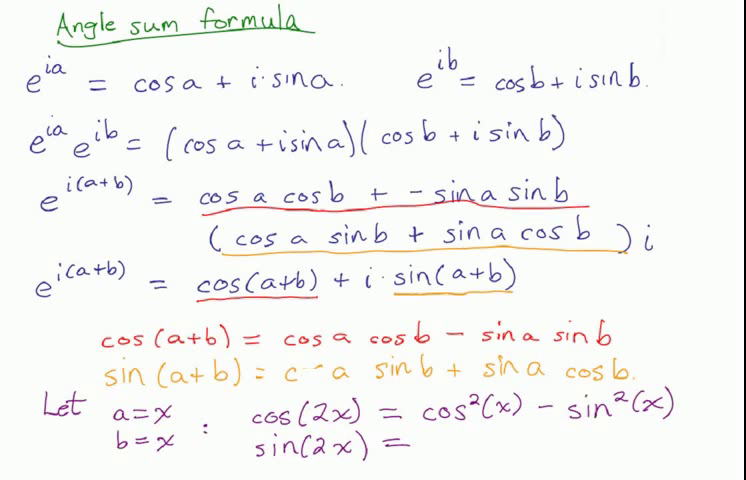 Angle sum formula
e^{ia} = cos a + i·sin a. e^{ib} = cos b + i sin b.
e^{ia} e^{ib} = (cos a + i sin a)(cos b + i sin b)
e^{i(a+b)} = cos a cos b + - sin a sin b
(cos a sin b + sin a cos b) i
e^{i(a+b)} = cos(a+b) + i·sin(a+b)
cos(a+b) = cos a cos b - sin a sin b
sin(a+b) = c a sin b + sin a cos b.
Let a=x : cos(2x) = cos²(x) - sin²(x)
b=x sin(2x) =